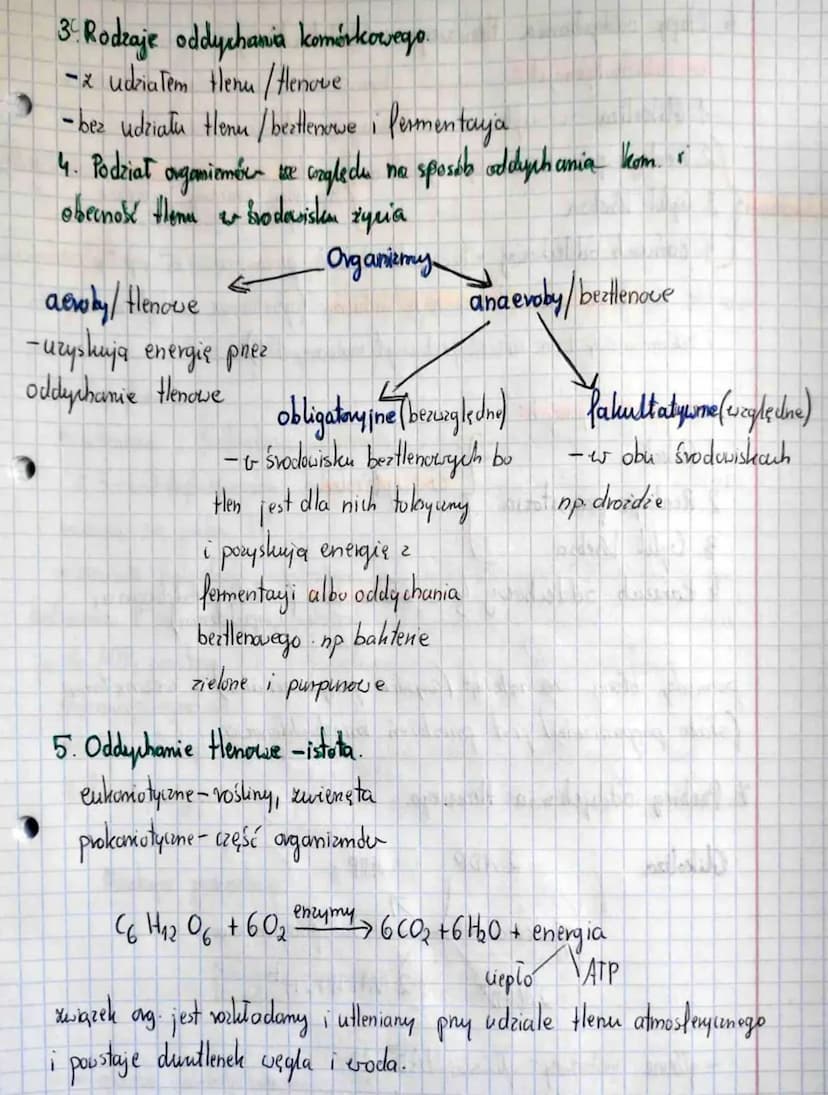 3. Rodzaje oddychania komórkowego.
-z udziałem tlenu/tlenowe
-bez udziału tlenu/beztlenowe i fermentacja
4. Podział organizmów ze względu na sposób oddychania kom. i
obecność tlenu w środowisku życia
Organizmy
aeroby/tlenowe
anaeroby/beztlenowe
-uzyskują energię przez
oddychanie tlenowe
obligatoryjne (bezwzględne)
fakultatywne (względne)
-w środowisku beztlenowych bo
-w obu środowiskach
tlen jest dla nich toksyczny
np. drożdże
i pozyskują energię z
fermentacji albo oddychania
beztlenowego. np bakterie
zielone i purpurowe
5. Oddychanie tlenowe - istota.
eukariotyczne - rośliny, zwierzęta
prokariotyczne - część organizmów
C6 H12 O6 + 6O2 enzymy → 6CO2 + 6H2O + energia
ciepło ATP
związek org. jest rozkładany i utleniany przy udziale tlenu atmosferycznego
i powstaje dwutlenek węgla i woda.